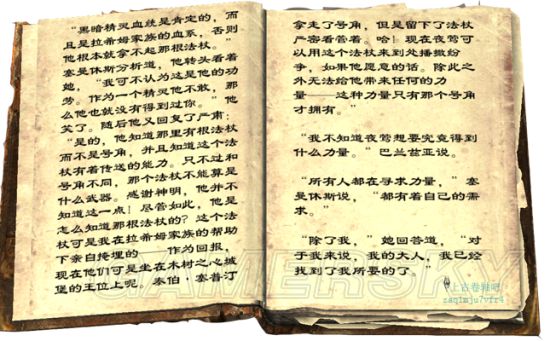 “黑暗精灵血统是肯定的，而
且是拉希姆家族的血系，否则
他根本就拿不起那根法杖。”
塞曼休斯分析道，他转头看着
她，“我可不认为这是他的功
劳。作为一个精灵他不敢，那
么他也就没有得到过你。”他
笑了。随后他又回复了严肃：
“是的，他知道那里有根法杖
而不是号角，并且知道这个法
杖有着传送的能力。只不过和
号角不同，那个法杖不能算是
什么武器。感谢神明，他并不
知道这一点！尽管如此，他是
怎么知道那根法杖的？这个法
杖可是我在拉希姆家族的帮助
下亲自掩埋的——作为回报，
现在他们可是坐在木树之心城
堡的王位上呢。泰伯·塞普汀
拿走了号角，但是留下了法杖
严密看管着，哈！现在夜莺可
以用这个法杖来到处播撒纷
争，如果他愿意的话。除此之
外无法给他带来任何的力
量——这种力量只有那个号角
才拥有。”
“我不知道夜莺想要究竟得到
什么力量。”巴兰兹亚说。
“所有人都在寻求力量，”塞
曼休斯说，“都有着自己的需
求。”
“除了我，”她回答道，“对
于我来说，我的大人，我已经
找到了我所要的了。”
GAMERSKY
上古卷轴吧
zaq1mju7vfr4